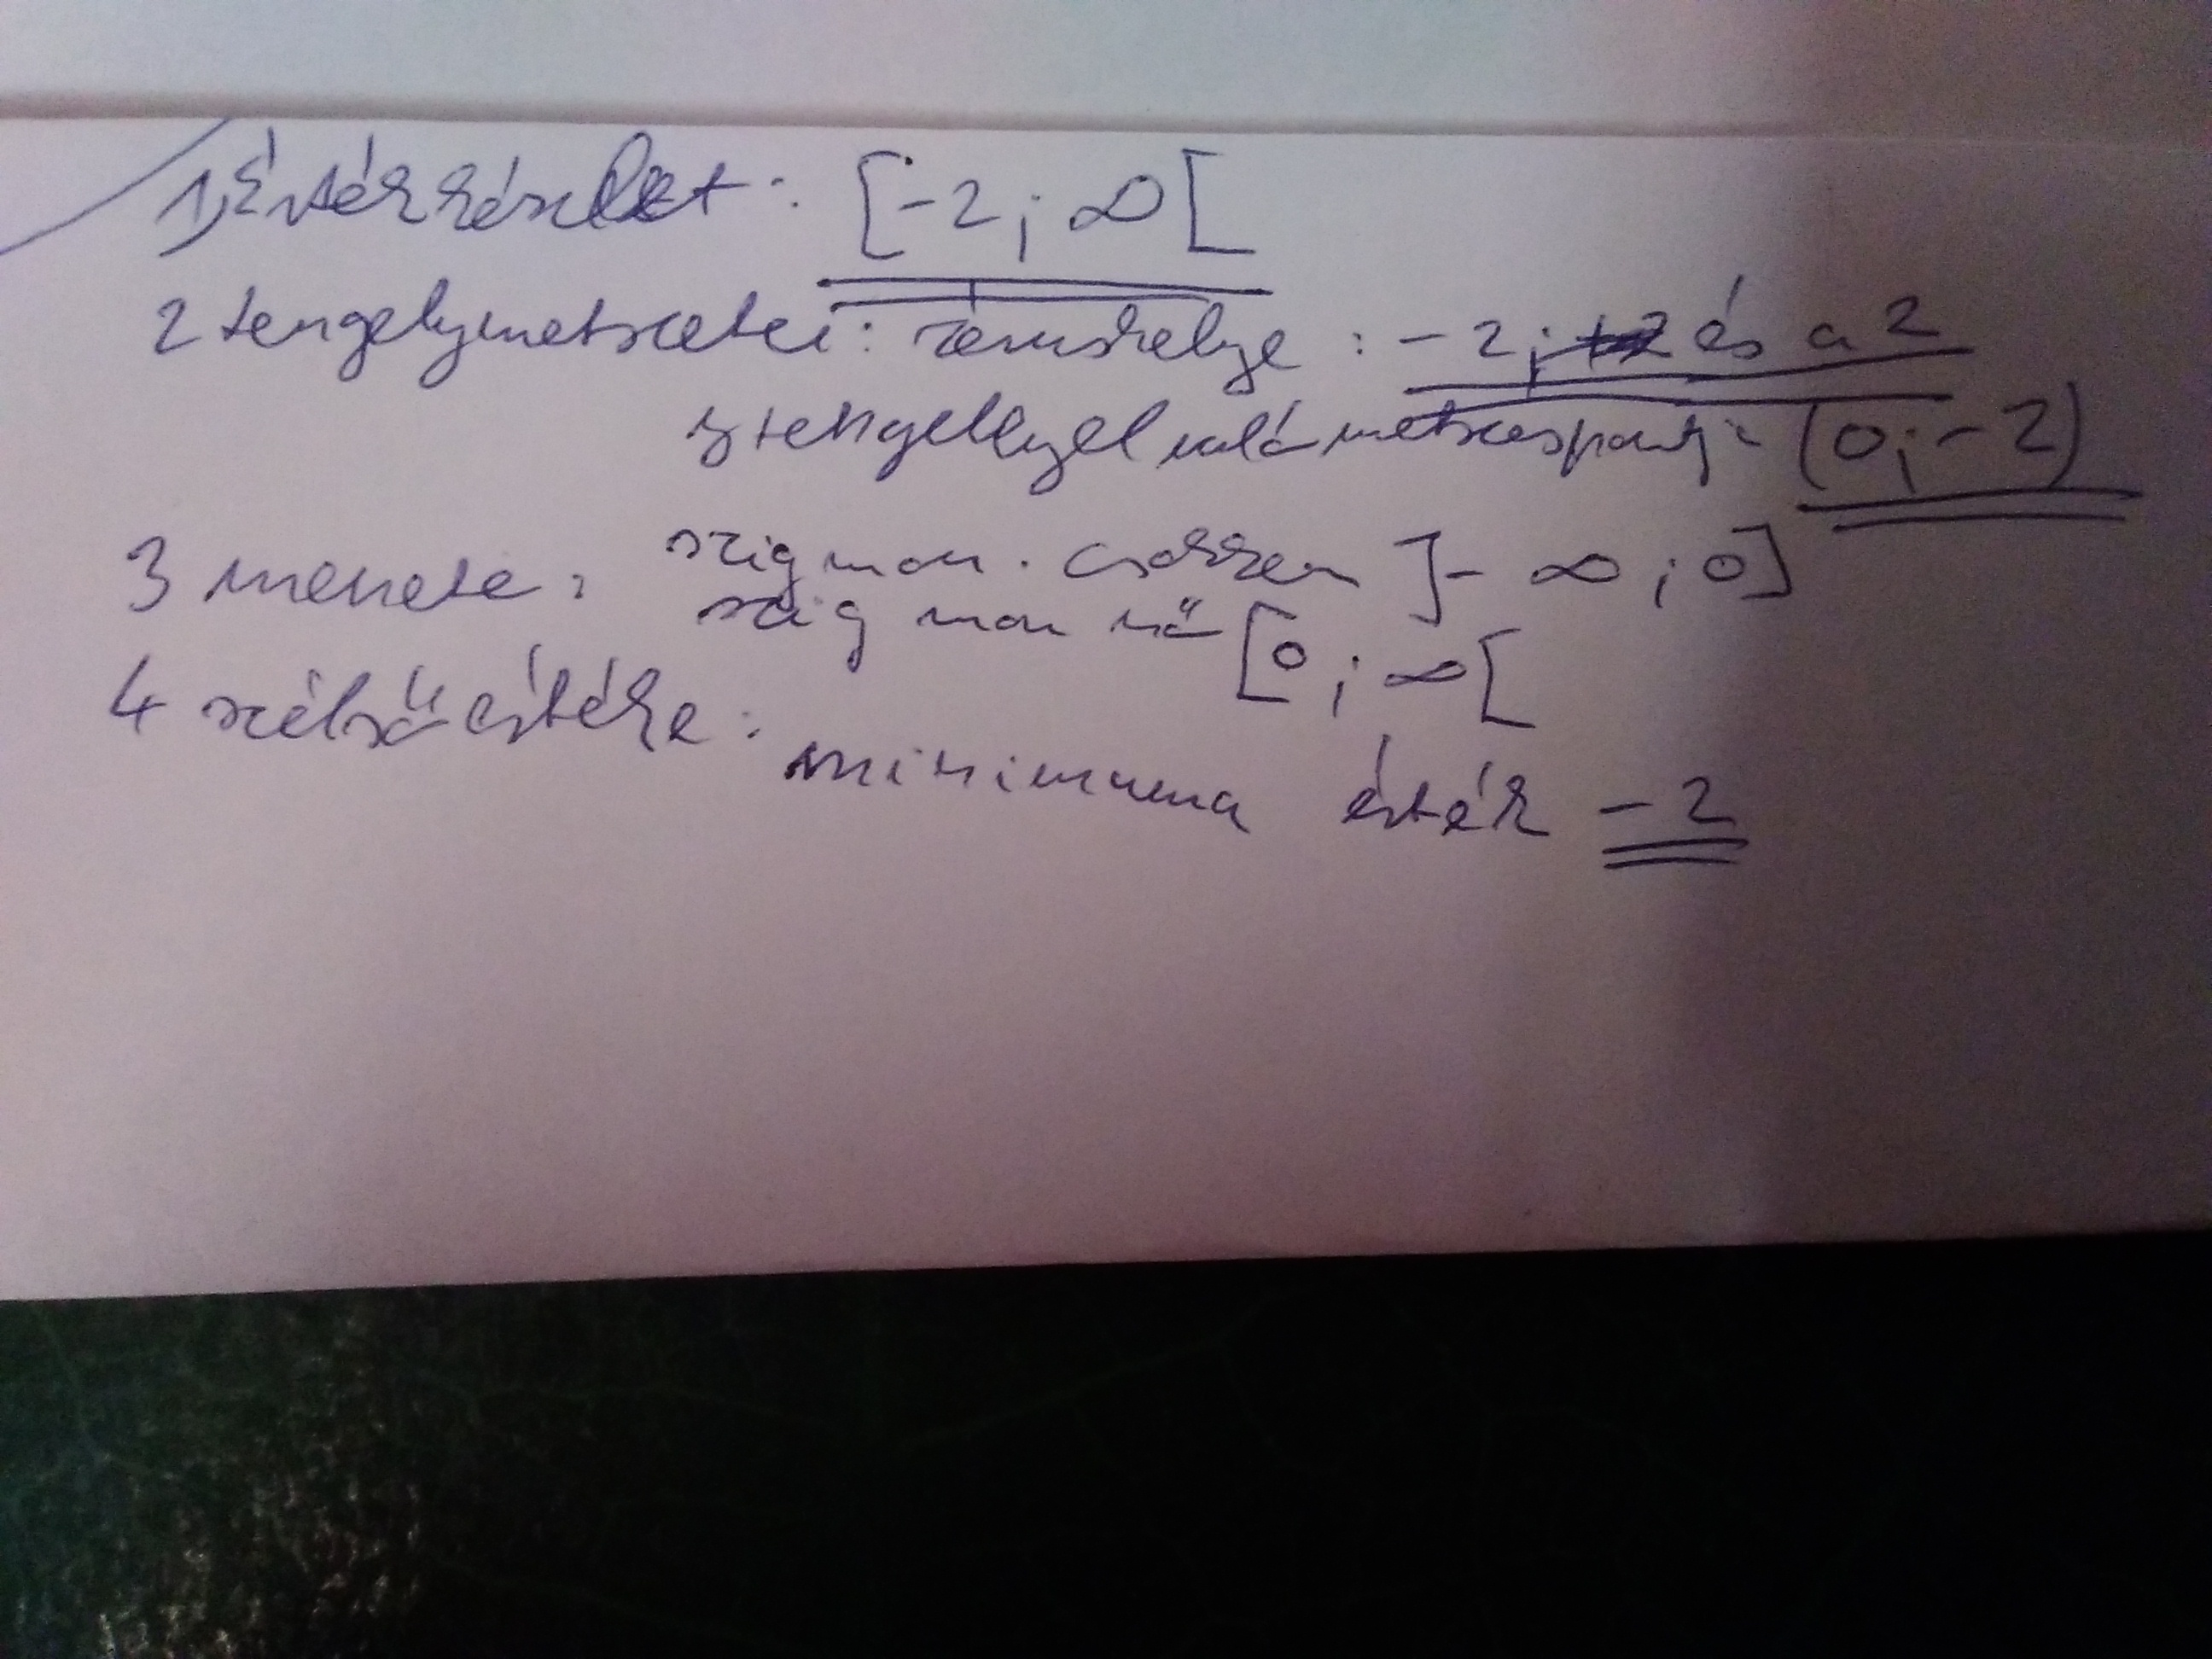 1, Értékkészlet: [-2; ∞[
2 tengelymetszetei: zérushelye: -2; és a 2
y tengellyel való metszéspontj: (0; -2)
3 menete: szig mon. csökken ]-∞; 0]
szig mon nő [0; ∞[
4 szélsőértéke:
minimuma érték -2